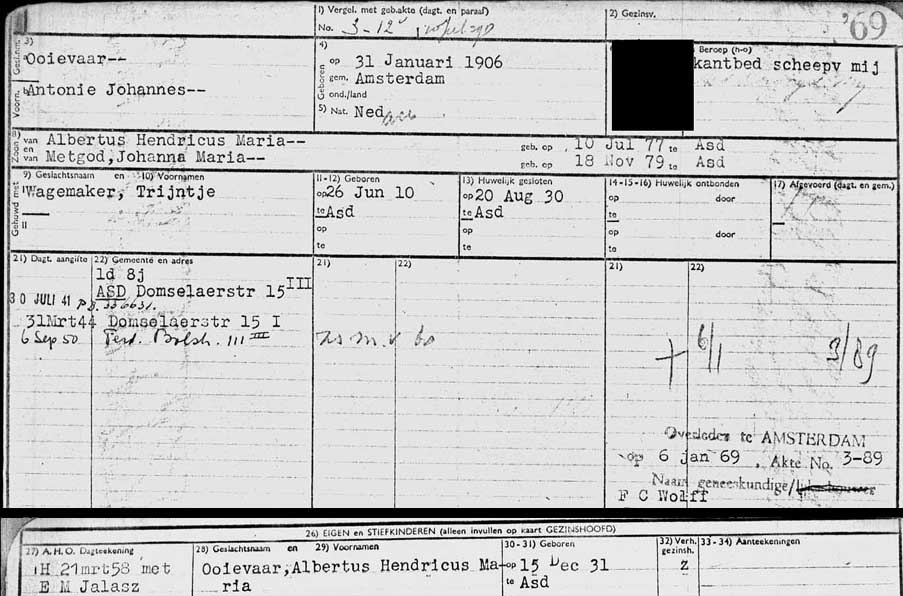 1) Vergel. met geb.akte (dagt. en paraaf)
No. 3-12
2) Gezinsv.
'69
3)
Gesl.nm. Ooievaar--
Voorn. Antonie Johannes--
4)
Geboren
op 31 Januari 1906
gem. Amsterdam
ond./land
5) Nat. Ned
Beroep (h-o)
kantbed scheepv mij
8)
Zoon
van Albertus Hendricus Maria-- geb. op 10 Jul 77 te Asd
en
van Metgod, Johanna Maria-- geb. op 18 Nov 79 te Asd
Gehuwd met
9) Geslachtsnaam en 10) Voornamen
Wagemaker, Trijntje
II
11-12) Geboren
op 26 Jun 10
te Asd
op
te
13) Huwelijk gesloten
op 20 Aug 30
te Asd
op
te
14-15-16) Huwelijk ontbonden
op door
te
op door
te
17) Afgevoerd (dagt. en gem.)
21) Dagt. aangifte 22) Gemeente en adres
1d 8j
ASD Domselaerstr 15 III
30 JULI 41
31Mrt44 Domselaerstr 15 I
6 Sep 50 Ferd. Bolstr. 111 III
21) 22)
21) 22)
† 6/1 3/89
Overleden te AMSTERDAM
op 6 jan 69 , Akte No. 3-89
Naam geneeskundige/
F C Wolff
26) EIGEN en STIEFKINDEREN (alleen invullen op kaart GEZINSHOOFD)
27) A.H.O. Dagteekening
H 21mrt58 met
E M Jalasz
28) Geslachtsnaam en 29) Voornamen
Ooievaar,Albertus Hendricus Ma-
ria
30-31) Geboren
op 15 Dec 31
te Asd
32) Verh. gezinsh.
Z
33-34) Aanteekeningen